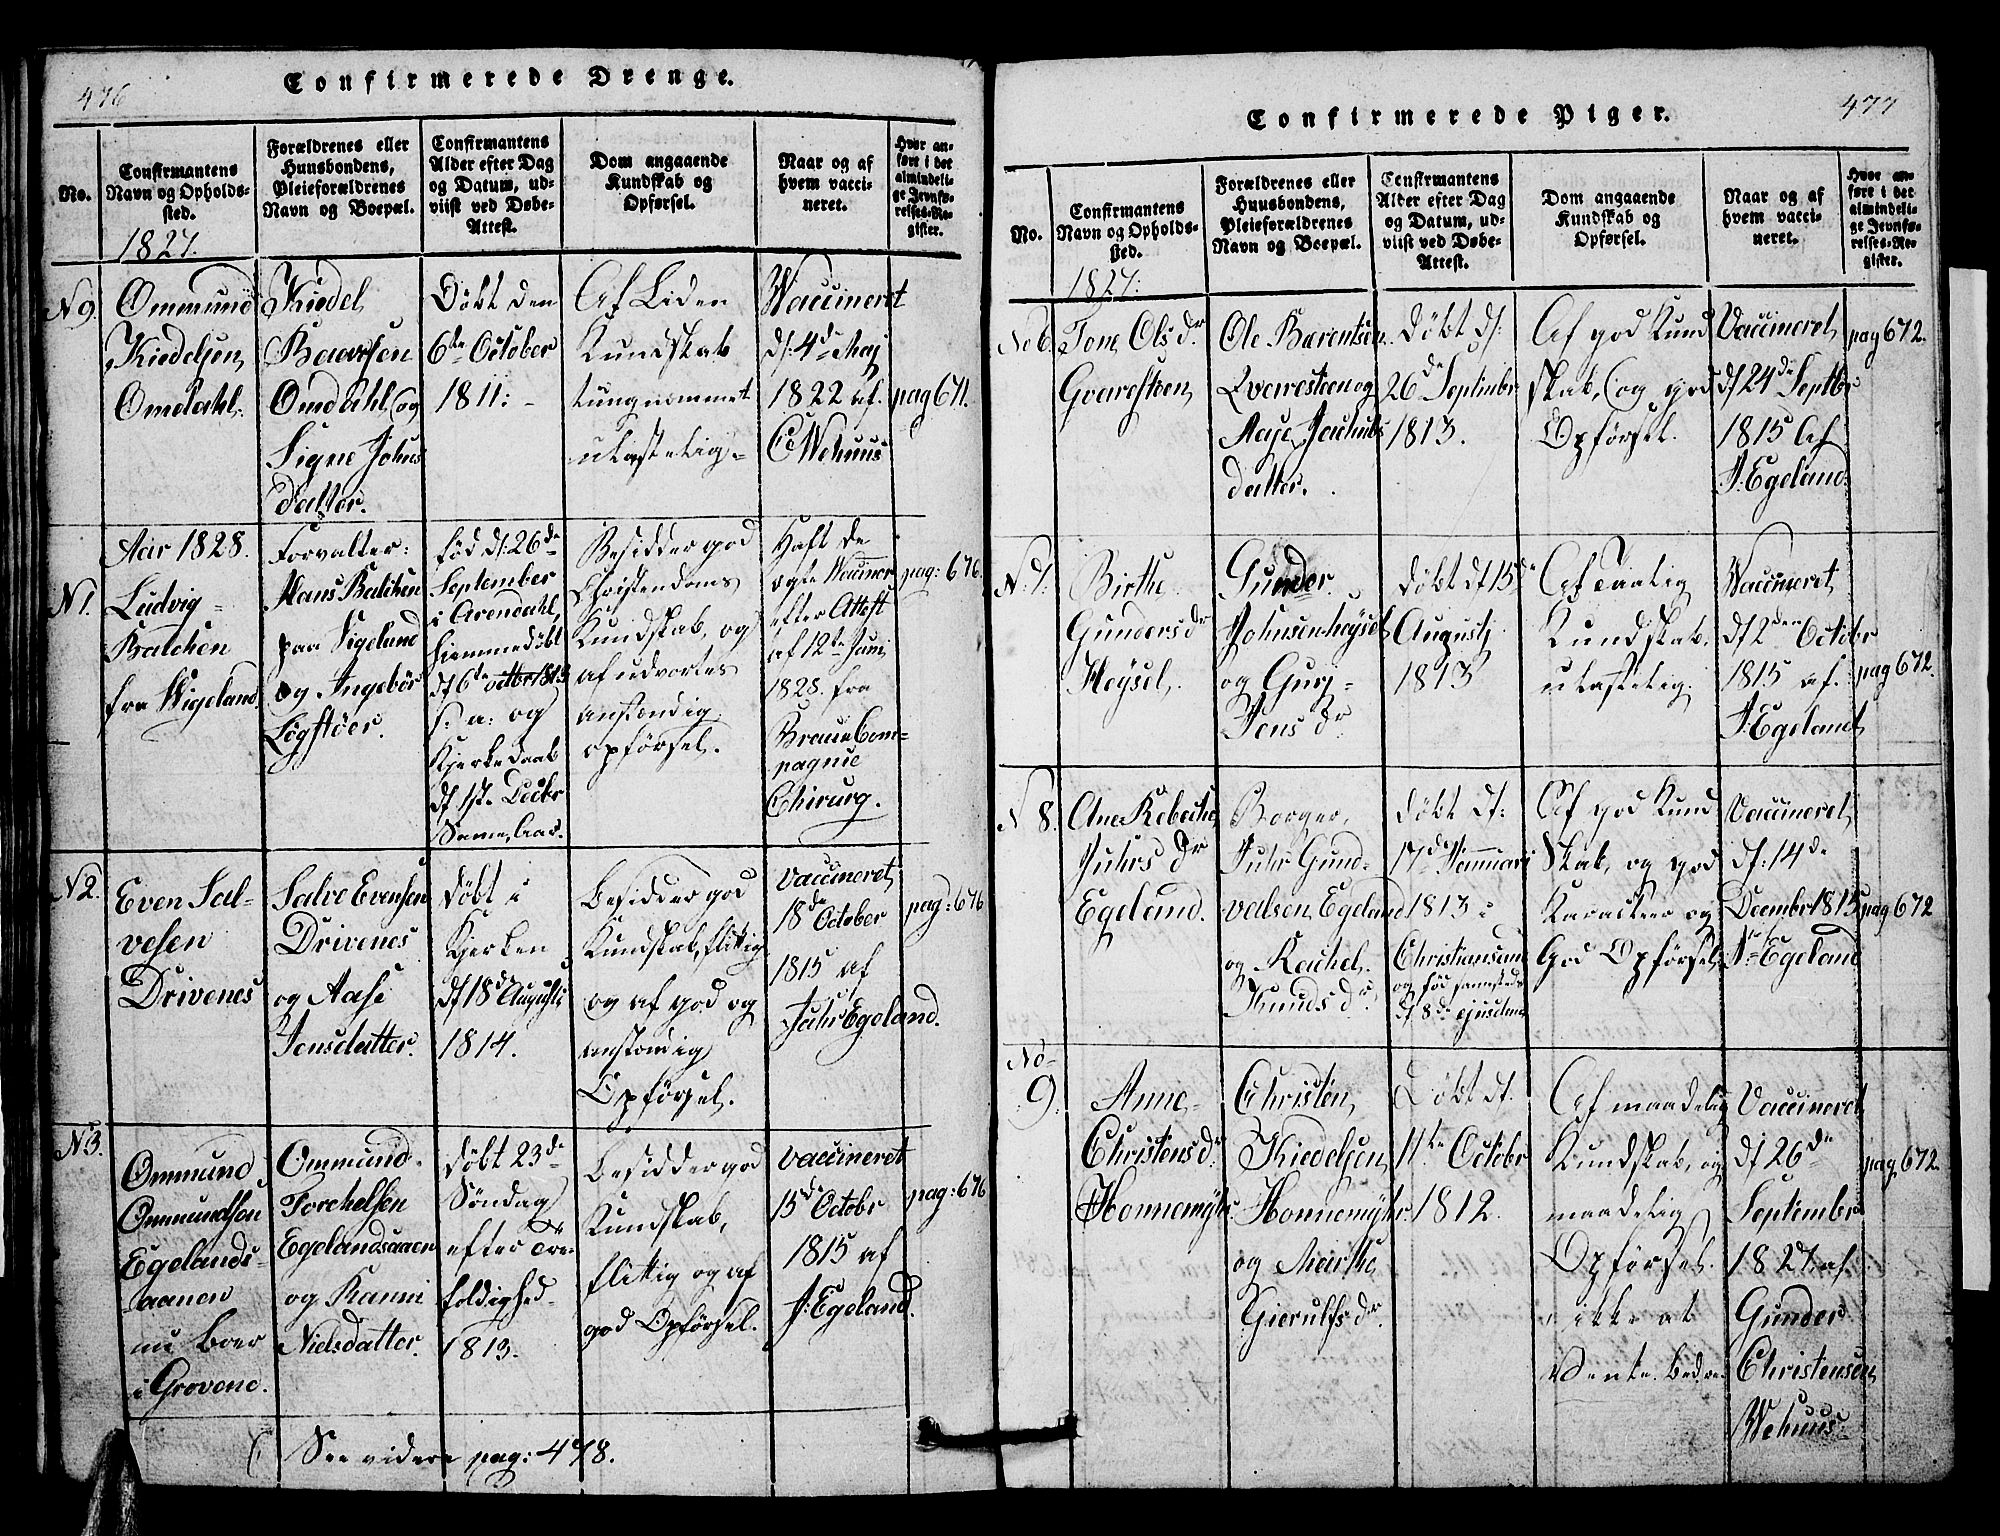 476
Confirmerede Drenge.
No.
Confirmantens
Navn og Opholds-
sted.
1827.
Forældrenes eller
Huusbondens,
Pleieforældrenes
Navn og Boepæl.
Confirmantens
Alder efter Dag
og Datum, ud-
viist ved Døbe-
Attest.
Dom angaaende
Kundskab og
Opførsel.
Naar og af
hvem vacci-
neret.
Hvor an-
ført i det
almindeli-
ge Jevnfø-
relses-Re-
gister.
N 9.
Ommund
Kiedelsen
Omdahl.
Kiedel
Omdahl, og
Signe Johns
datter.
Döbt den
6te October
1811: -
Af Liden
Kundskab
tungnemmet
ulastelig.-
Vaccineret
d: 4de Maj
1822 af.
C Wehuus
pag 671.
Aar 1828.
N 1.
Ludvig
Balchen
fra Wigeland
Forvalter:
Hans Balchen
paa Vigeland
og Ingebör
Lögstöer.
föd d: 26de
September
i Arendahl,
hiemmedöbt
df 6te octbr 1813
s: a: og
Kjerkedaab
df 1ste Decbr
Samme Aar.
Besidder god
Christendoms
Kundskab, og
af udvortes
anstændig
opförsel.
Haft de
ægte Vacciner
efter Attest
af 12te Juni
1828. fra
Com-
pagnie
Chirurg.
pag: 676.
N 2.
Even Sal-
vesen
Drivenes
Salve Evensen
Drivenes
og Aase
Jensdatter.
döbt i
Kjerken
df 18de Augusti
1814.
Besidder god
Kundskab, flittig
og af god og
anstændig
Opförsel.
vaccineret
18de October
1815 af
Juhr Egeland.
pag: 676
N 3.
Ommund
Ommundsen
Egelands-
aanen
nu boer
i Grovene.
Ommund
Torchelsen
Egelandsaaen
og Kanni
Nielsdatter.
döbt 23de
Söndag
efter Tre-
foldighed
1813.
Besidder god
Kundskab,
flittig og af
god Opförsel.
vaccineret
15de Octobr
1815 af
J: Egeland.
pag: 676
See videre pag: 478.
477
Confirmerede Piger.
No.
Confirmantens
Navn og Opholds-
sted.
1827:
Forældrenes eller
Huusbondens,
Pleieforældrenes
Navn og Boepæl.
Confirmantens
Alder efter Dag
og Datum, ud-
viist ved Døbe-
Attest.
Dom angaaende
Kundskab og
Opførsel.
Naar og af
hvem vacci-
neret.
Hvor an-
ført i det
almindeli-
ge Jevnfø-
relses-Re-
gister.
No 6.
Tone Ols dr
Qvarsteen
Ole Barentsen
Qvarsteen og
Aase Jachobs
datter.
döbt d:
26de Septembr
1813.
Af god Kund
skab, og god
Opförsel.
Vaccineret
df 24de Septbr
1815 af
J: Egeland.
pag 672.
N. 7.
Birthe
Gunders dr
Heysel.
Gunder
Johnsen Heysel
og Gurj
Jens dr
döbt df 15de
Augustj
1813
Af Taalig
Kundskab.
ulastelig.
Vaccineret
df 2den Octobr
1815 af.
J: Egeland
pag 672.
N 8.
Ane Rebecha
Juhrs dr
Egeland.
Borger,
Juhr Gund-
valsen Egeland
og Rachel
Knuds dr
döbt df:
17de Januari
1813 i
Christiansand
og föd sammesteds
df 8de ejusdem
Af god Kund
Skab, og god
Karackter og
God Opförsel.
Vaccineret
df: 14de
Decembr 1815 af
Jr Egeland
pag 672
No
9.
Anne
Christens dr
Honnemÿhr
Christen
Kiedelsen
Honnemÿhr.
og Marthe
Gierulfs dr
Döbt df.
11te Octobr
1812.
Af maadelig
Kundskab, og
maadelig
Opförsel.
ikke at
vente bedre
Vaccineret
df 26de
Septembr
1827 af
Gunder
Christensen
Wehuus
pag 672.